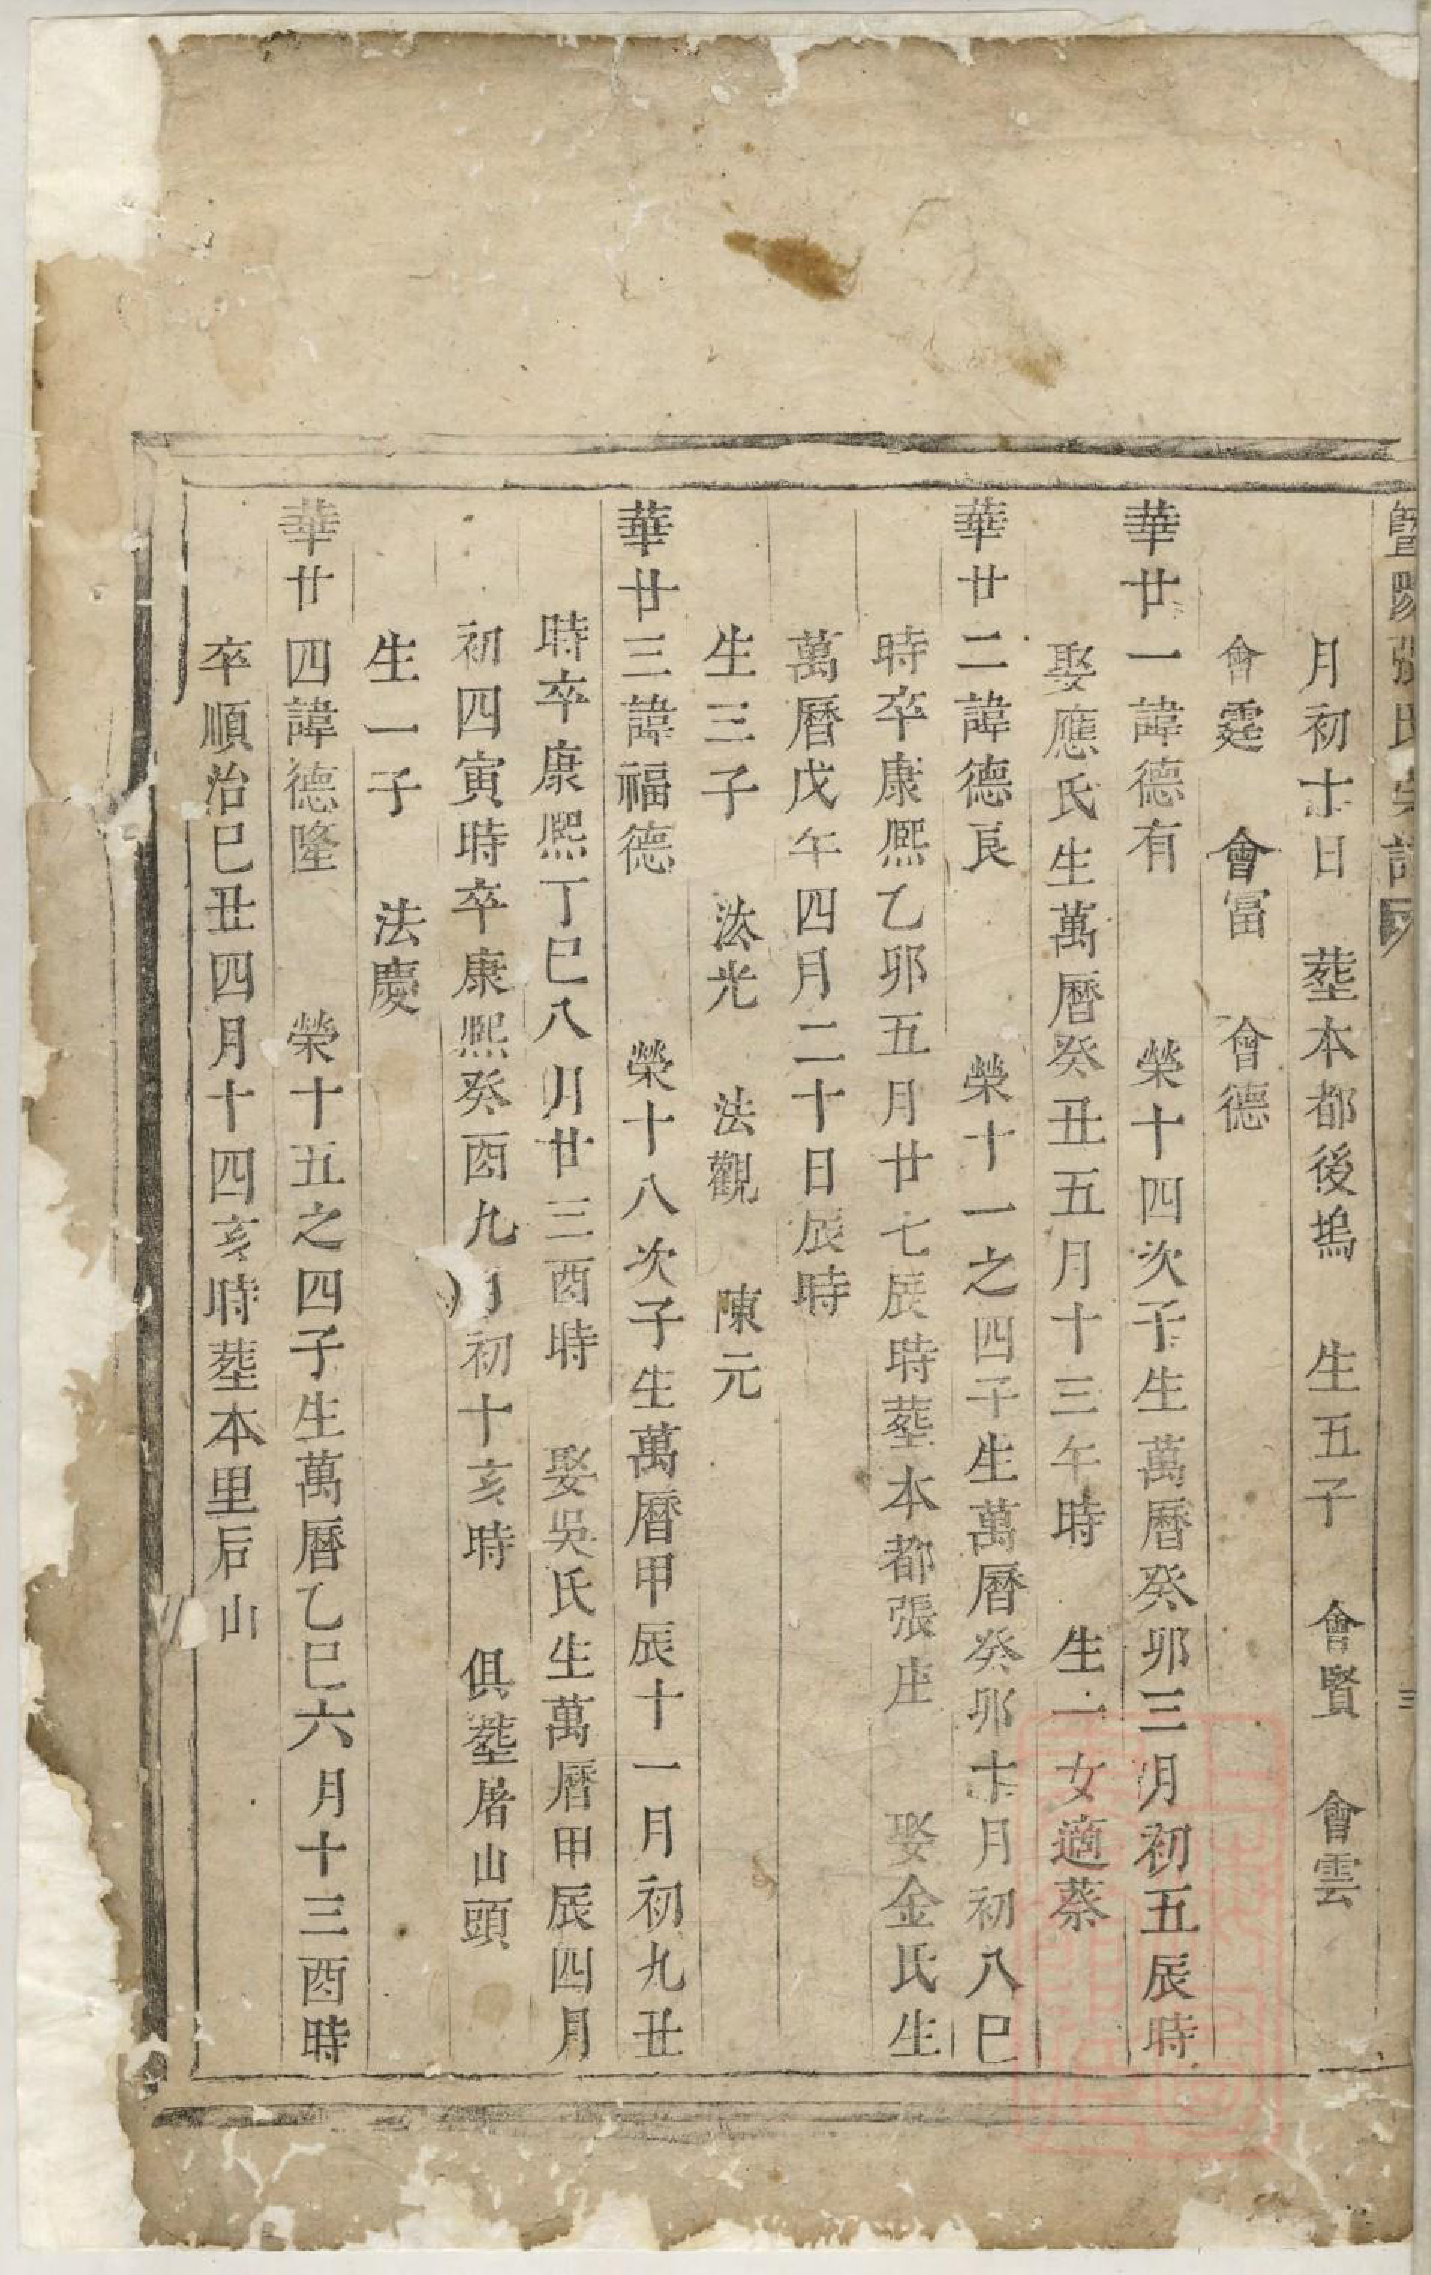 暨陽張氏宗譜
月初十日 塟本都後塢 生五子 會賢 會雲
會霆 會冨 會德
華廿一諱德有 榮十四次子生萬曆癸卯三月初五辰時
娶應氏生萬曆癸丑五月十三午時 生一女適蔡
華廿二諱德良 榮十一之四子生萬曆癸卯十月初八巳
時卒康熙乙卯五月廿七辰時塟本都張庄 娶金氏生
萬曆戊午四月二十日辰時
生三子 法光 法觀 陳元
華廿三諱福德 榮十八次子生萬曆甲辰十一月初九丑
時卒康熙丁巳八月廿三酉時 娶吳氏生萬曆甲辰四月
初四寅時卒康熙癸酉九月初十亥時 俱塟屠山頭
生一子 法慶
華廿四諱德隆 榮十五之四子生萬曆乙巳六月十三酉時
卒順治巳丑四月十四亥時塟本里后山